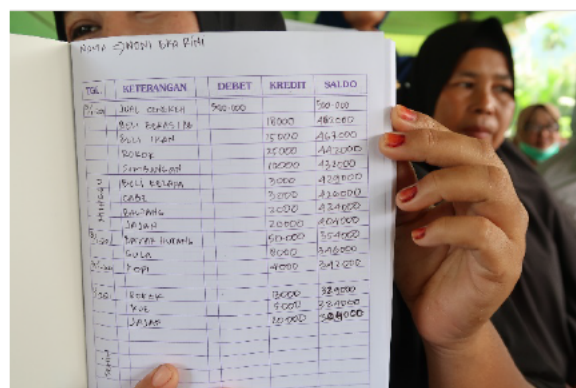 NAMA => NOVI EKA RINI
TGL. KETERANGAN DEBET KREDIT SALDO
JUAL CENGKEH 500.000 500.000
BELI 18000 482000
BELI IKAN 15000 467000
ROKOK 25000 442000
SUMBANGAN 10000 432000
BELI KELAPA 3000 429000
CABE 3000 426000
BAWANG 2000 424000
JAJAN 20000 404000
BAYAR HUTANG 50.000 354000
GULA 8000 346000
KOPI 4000 342000
ROKOK 13000 329000
KUE 5000 324000
JAJAN 20.000 304000
MINGGU
SENIN